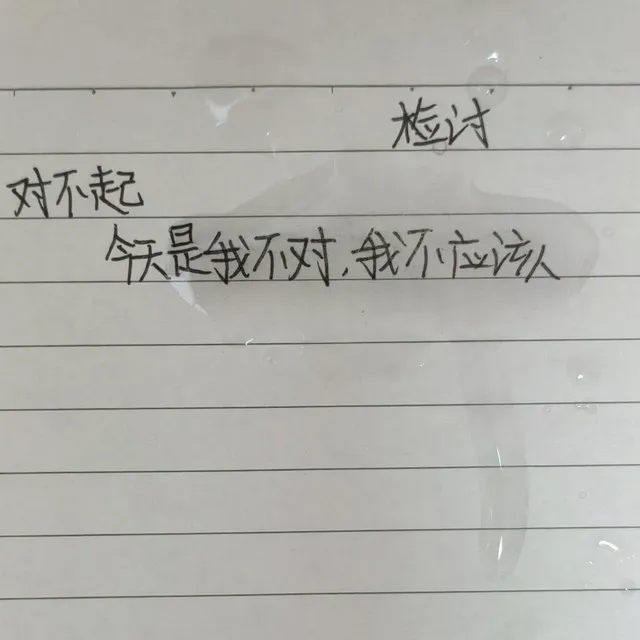 检讨
对不起
今天是我不对，我不应该人